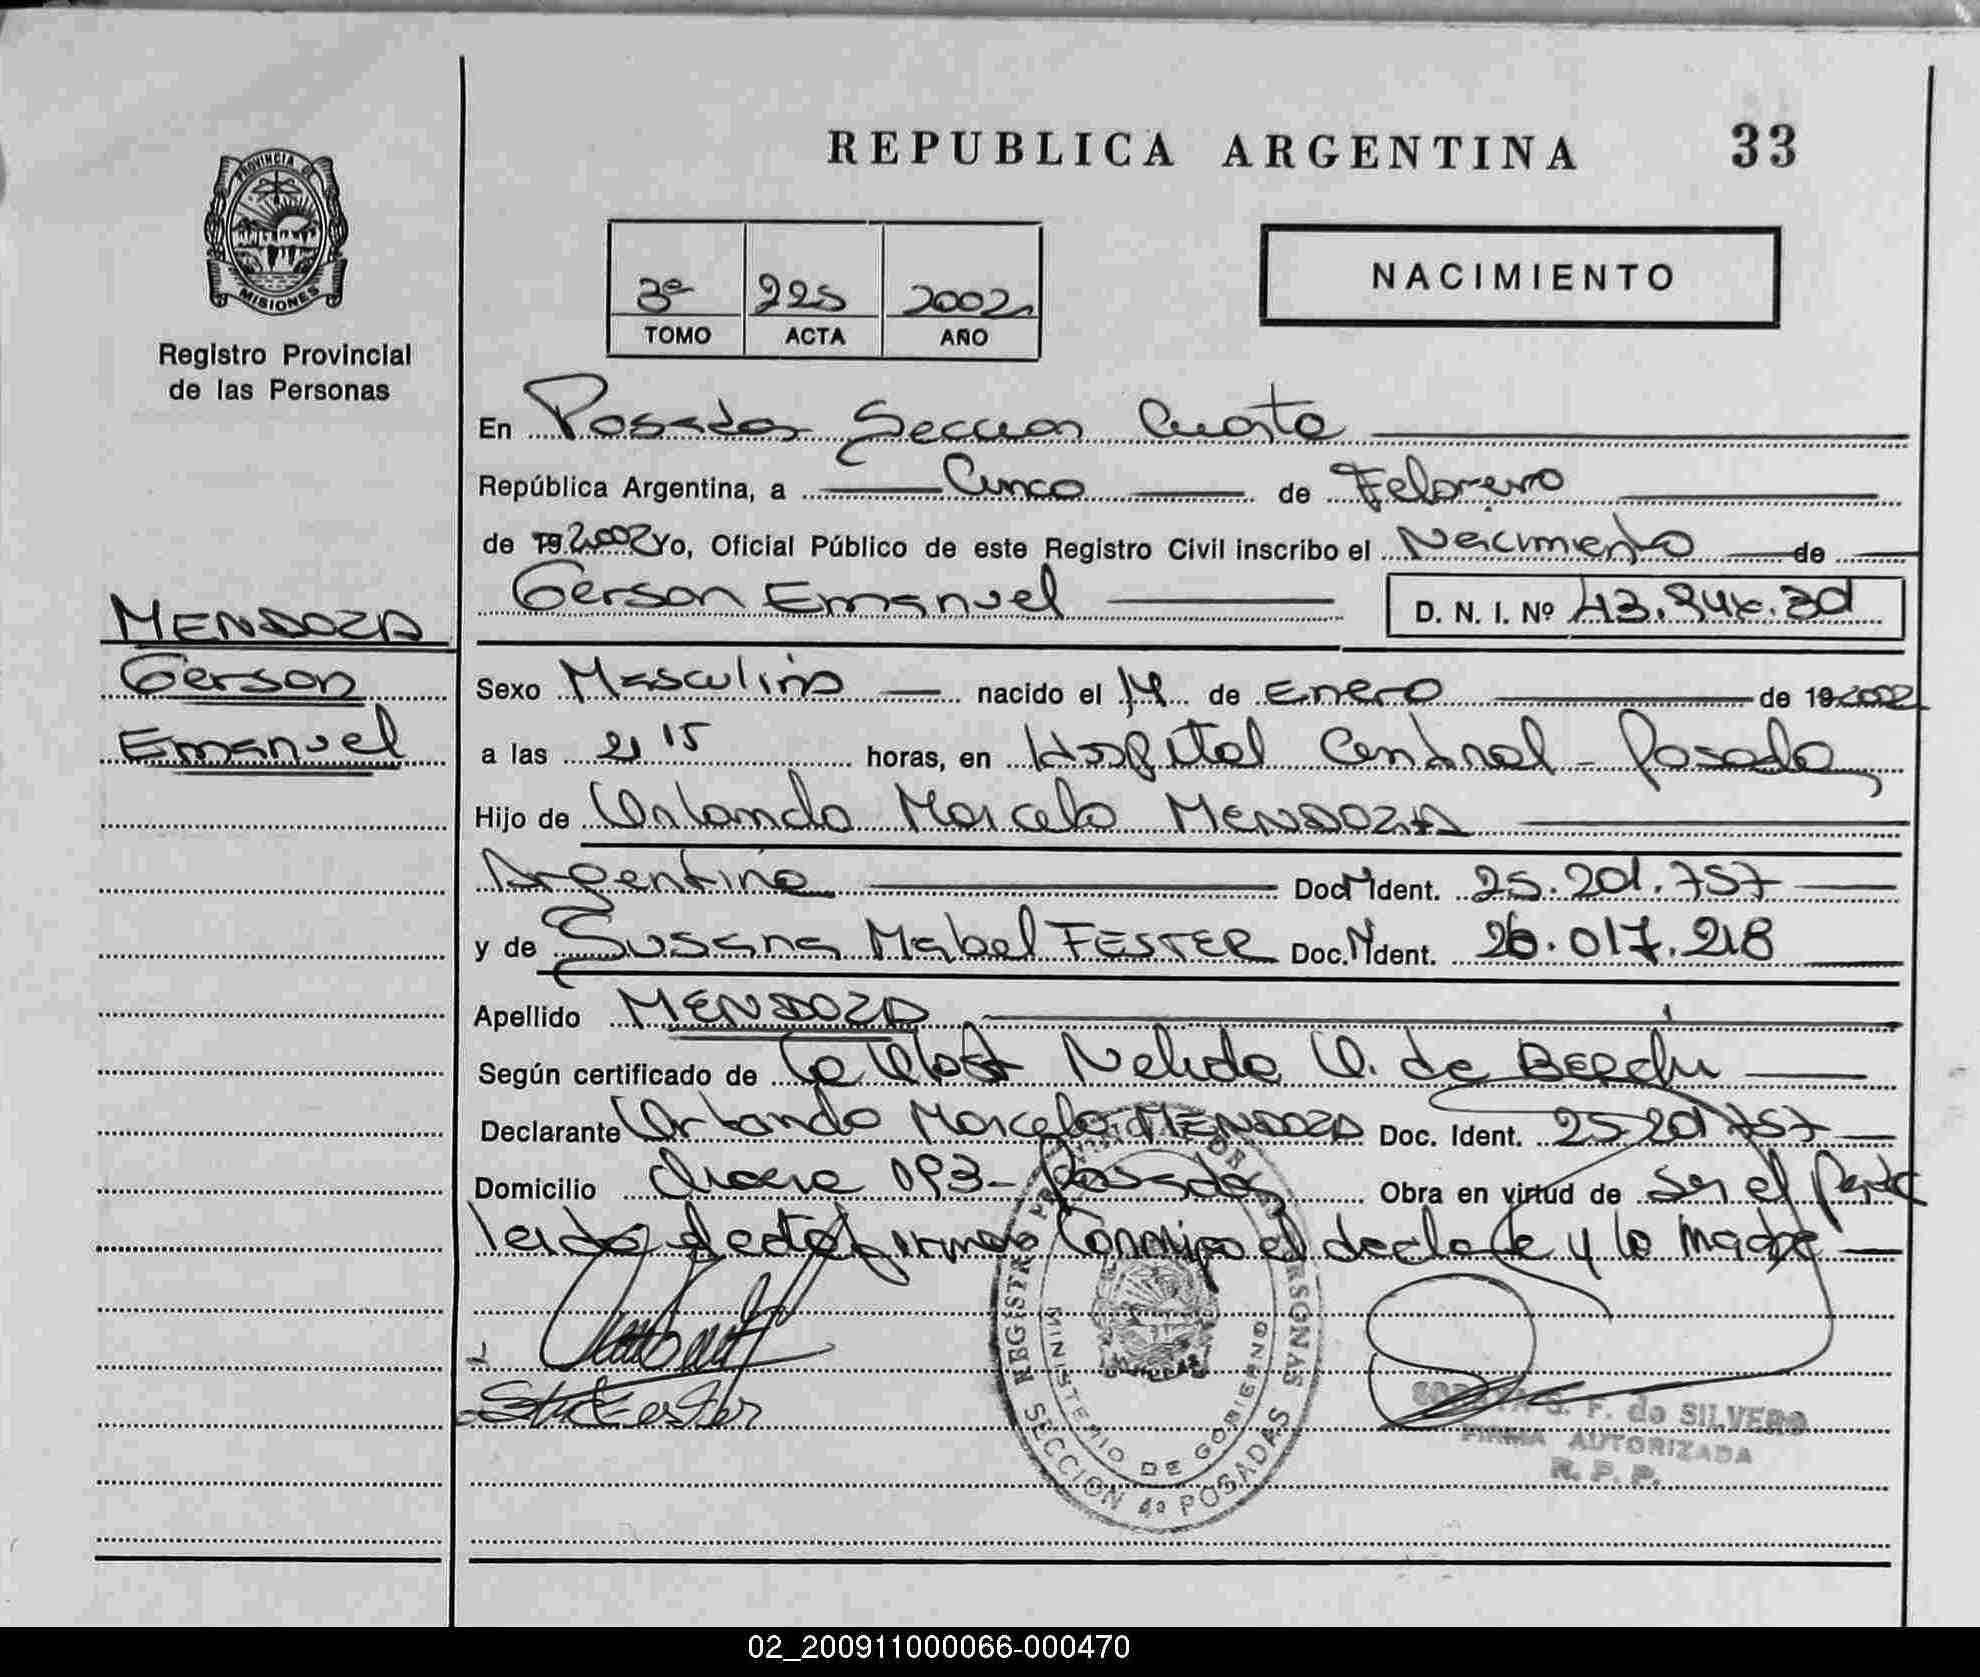 REPUBLICA ARGENTINA 33
PROVINCIA DE
MISIONES
Registro Provincial
de las Personas
3º 225 2002
TOMO ACTA AÑO
NACIMIENTO
En Posadas Seccion Cuarta
República Argentina, a Cinco de Febrero
de 19 2002 Yo, Oficial Público de este Registro Civil inscribo el Nacimiento de
Gerson Emanuel D. N. I. Nº 43.
MENDOZA
Gerson
Emanuel
Sexo Masculino nacido el de Enero de 19 2002
a las 21 15 horas, en Hospital Central - Posadas
Hijo de Orlando Marcelo MENDOZA
Argentina Doc. Ident. 25.201.757
y de Susana Mabel FESTER Doc. Ident. 26.017.218
Apellido MENDOZA
Según certificado de Nelida de
Declarante Orlando Marcelo MENDOZA Doc. Ident. 25 201 757
Domicilio 193 - Posadas Obra en virtud de ser el Padre
leido el acta firman conmigo el declate y la madre
REGISTRO PERSONAS
MINISTERIO DE GOBIERNO
SECCION 4ª POSADAS
S. F. de SILVERO
FIRMA AUTORIZADA
R. P. P.
02_200911000066-000470